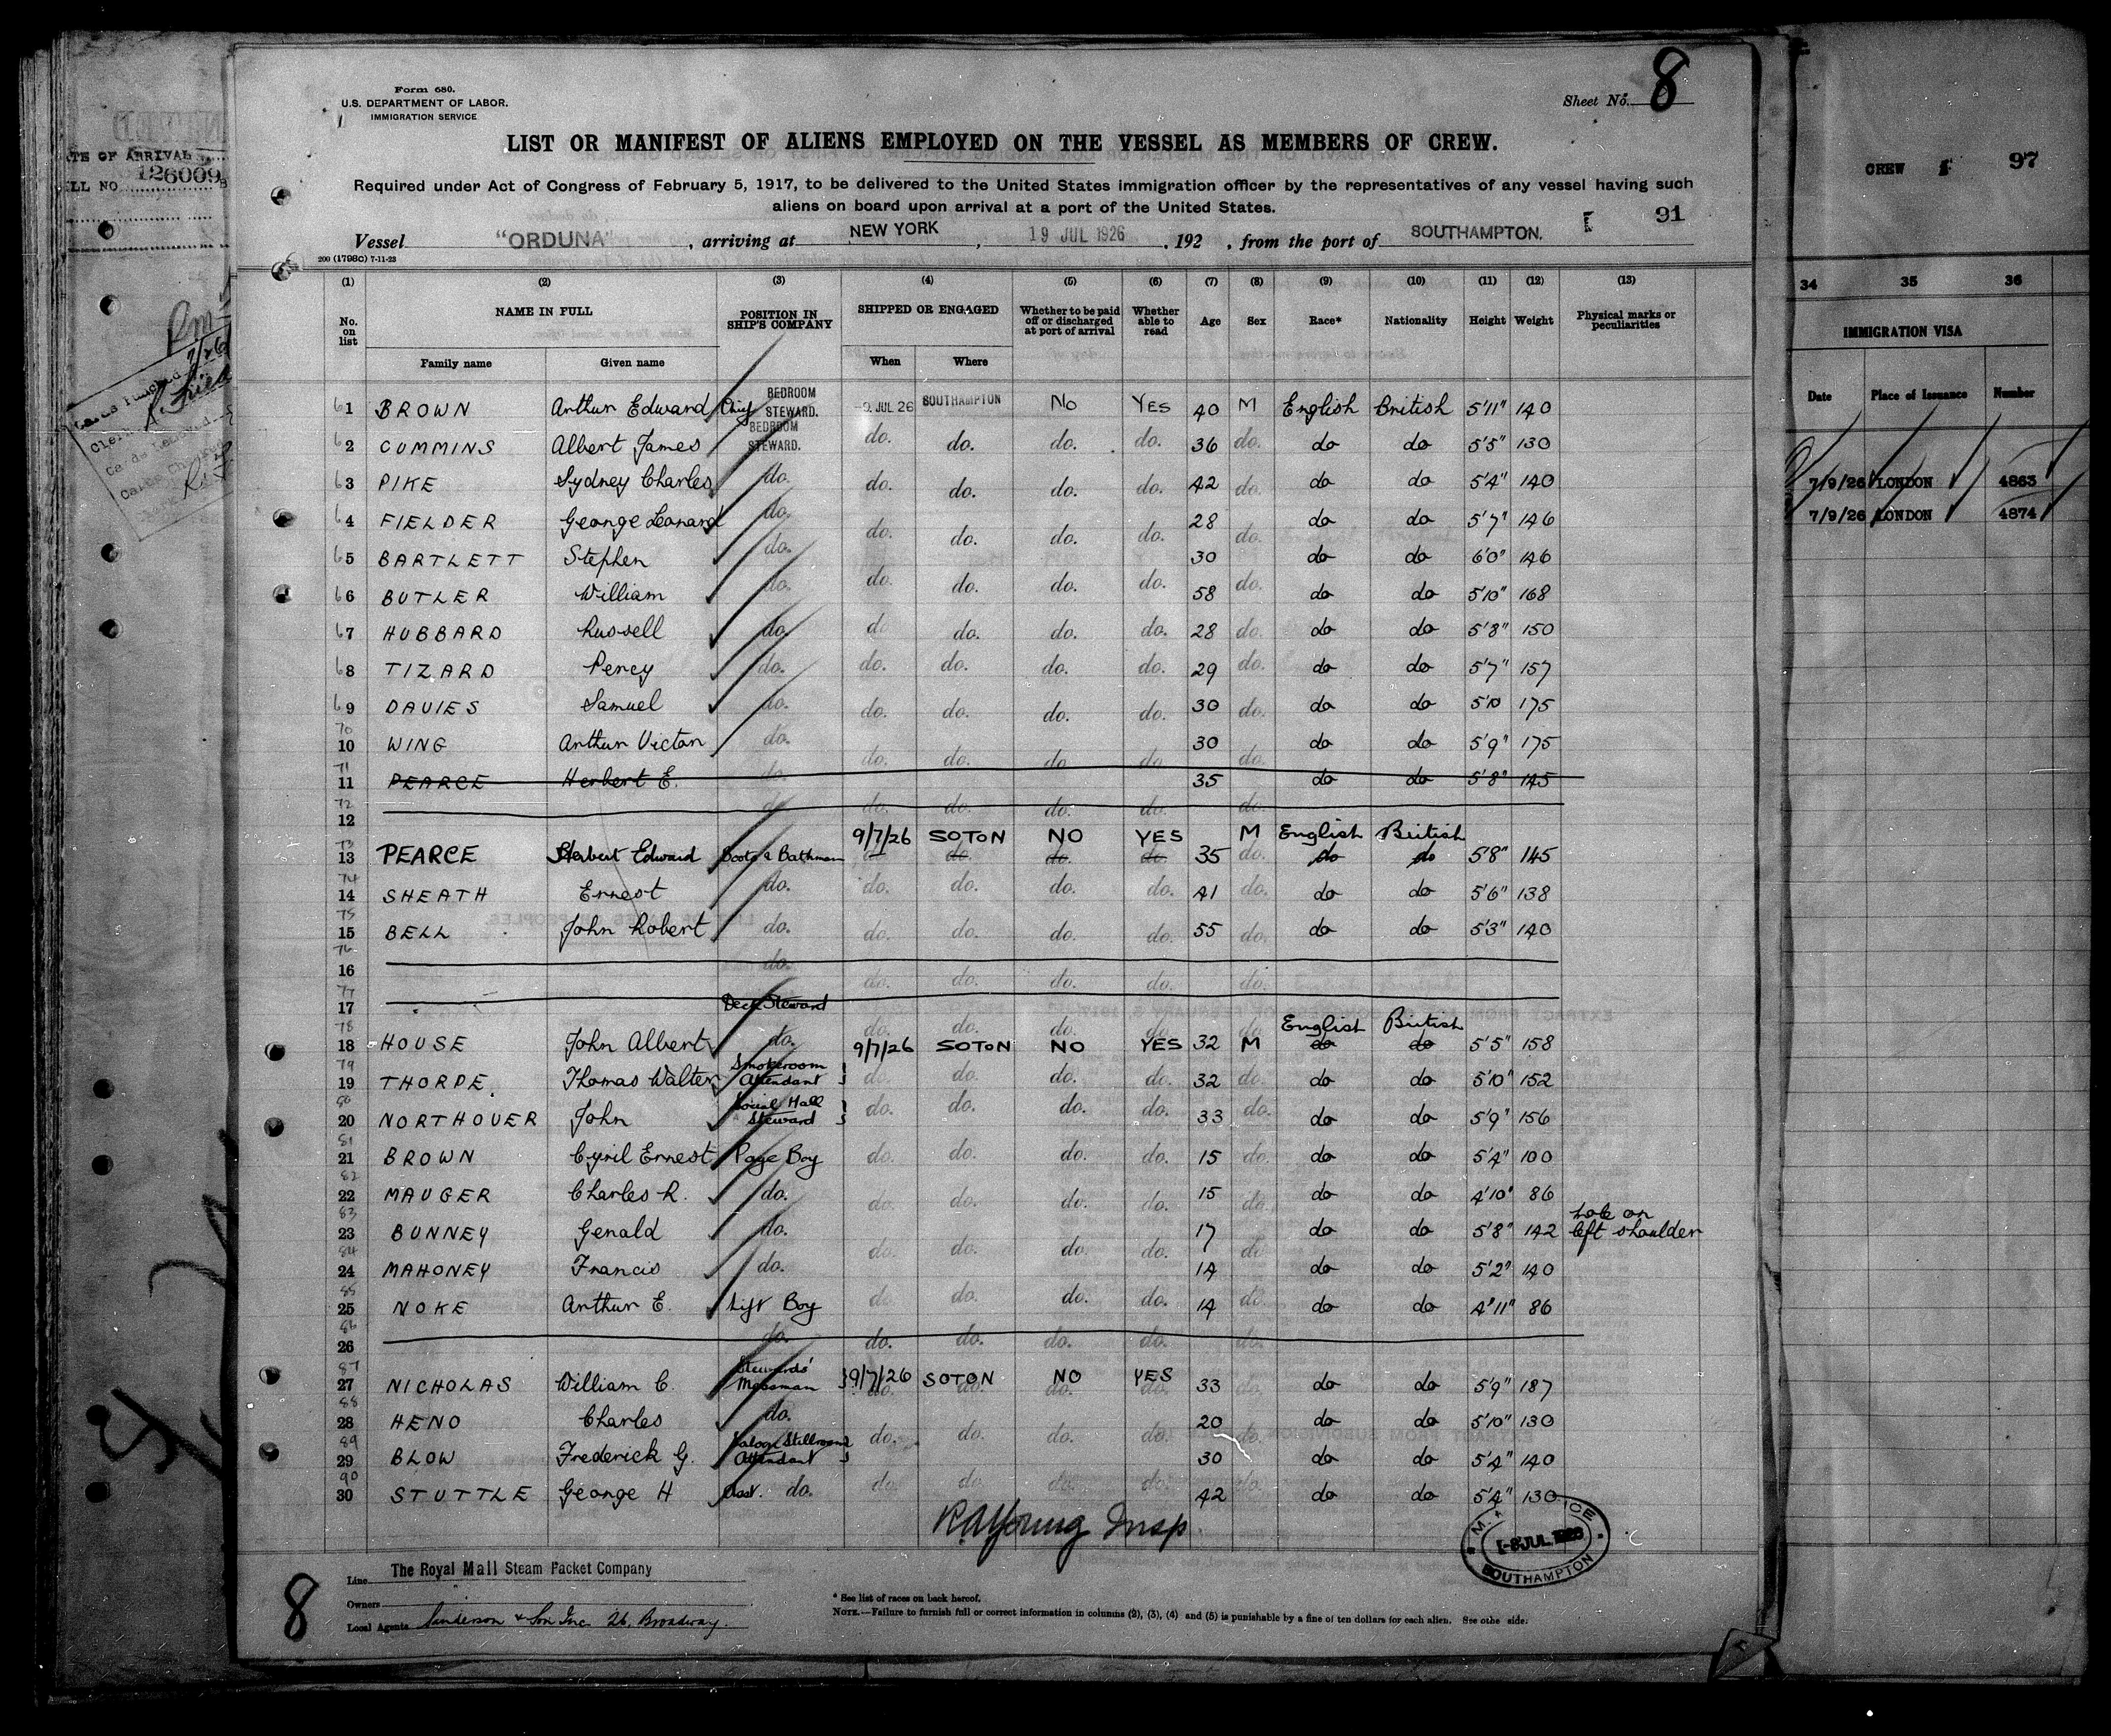 Form 680.
U.S. DEPARTMENT OF LABOR.
IMMIGRATION SERVICE
Sheet No. 8
LIST OR MANIFEST OF ALIENS EMPLOYED ON THE VESSEL AS MEMBERS OF CREW.
Required under Act of Congress of February 5, 1917, to be delivered to the United States immigration officer by the representatives of any vessel having such
aliens on board upon arrival at a port of the United States.
91
Vessel "ORDUNA", arriving at NEW YORK, 19 JUL 1926, 192 , from the port of SOUTHAMPTON.
200 (1798C) 7-11-23
(1) (2) (3) (4) (5) (6) (7) (8) (9) (10) (11) (12) (13)
No. on list NAME IN FULL POSITION IN SHIP'S COMPANY SHIPPED OR ENGAGED Whether to be paid off or discharged at port of arrival Whether able to read Age Sex Race* Nationality Height Weight Physical marks or peculiarities
Family name Given name When Where
61 1 BROWN Arthur Edward Chief BEDROOM STEWARD. -9 JUL 26 SOUTHAMPTON No YES 40 M English British 5'11" 140
2 CUMMINS Albert James BEDROOM STEWARD. do. do. do. do. 36 do. do do 5'5" 130
3 PIKE Sydney Charles do. do. do. do. do. 42 do. do do 5'4" 140
4 FIELDER George Leonard do. do. do. do. do. 28 do. do do 5'7" 146
5 BARTLETT Stephen do. 30 do do 6'0" 146
6 BUTLER William do. do. do. do. do. 58 do. do do 5'10" 168
7 HUBBARD Russell do. do do. do. do. 28 do. do do 5'8" 150
8 TIZARD Percy do. do. do. do. do. 29 do. do do 5'7" 157
9 DAVIES Samuel do. do. do. do. do. 30 do. do do 5'10 175
70 10 WING Arthur Victor do. 30 do do 5'9" 175
71 11 PEARCE Herbert E. do. do. do. do do 35 do. do do 5'8" 145
72 12 do. do. do. do. do. do.
9/7/26 SOTON NO YES M English British
73 13 PEARCE Herbert Edward Boots & Bathman do. do. do. 35 do. do do 5'8" 145
74 14 SHEATH Ernest do. do. do. do. do. 41 do. do do 5'6" 138
75 15 BELL John Robert do. do. do. do. do. 55 do. do do 5'3" 140
76 16 do. do. do. do. do. do.
77 17 Deck Steward
English British
78 18 HOUSE John Albert do. 9/7/26 SOTON NO YES 32 M do do 5'5" 158
79 19 THORPE Thomas Walter Smokeroom Attendant do. do. do. do. 32 do. do do 5'10" 152
80 20 NORTHOVER John Social Hall Steward do. do. do. do. 33 do. do do 5'9" 156
81 21 BROWN Cyril Ernest Page Boy do. do. do. do. 15 do. do do 5'4" 100
82 22 MAUGER Charles R. do. do. do. do. do. 15 do. do do 4'10" 86
83 23 BUNNEY Gerald do. 17 do do 5'8" 142 left shoulder
84 24 MAHONEY Francis do. do. do. do. do. 14 do do do 5'2" 140
85 25 NOKE Arthur E. Lift Boy do. do. do. do. 14 do. do do 4'11" 86
86 26 do. do. do. do. do. do.
87 27 NICHOLAS William C. Stewards' Messman 9/7/26 SOTON NO YES 33 do do 5'9" 187
88 28 HENO Charles do. 20 do do 5'10" 130
89 29 BLOW Frederick G. Saloon Stillroom Attendant do. do. do. do. 30 do. do do 5'4" 140
90 30 STUTTLE George H Asst. do. do. do. do. do. 42 do. do do 5'4" 130
R A Young Insp.
-8 JUL 1926
SOUTHAMPTON
8
Line The Royal Mail Steam Packet Company
Owners
Local Agents Sanderson & Son Inc 26, Broadway.
* See list of races on back hereof.
NOTE.—Failure to furnish full or correct information in columns (2), (3), (4) and (5) is punishable by a fine of ten dollars for each alien. See othe side.
CREW 97
34 35 36
IMMIGRATION VISA
Date Place of Issuance Number
7/9/26 LONDON 4863
7/9/26 LONDON 4874
OF ARRIVAL
LL NO. 126009